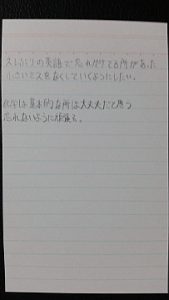 久しぶりの英語で忘れかけてる所があった
小さいミスをなくしていくようにしたい。
化学は基本的な所は大丈夫だと思う
忘れないように頑張る。